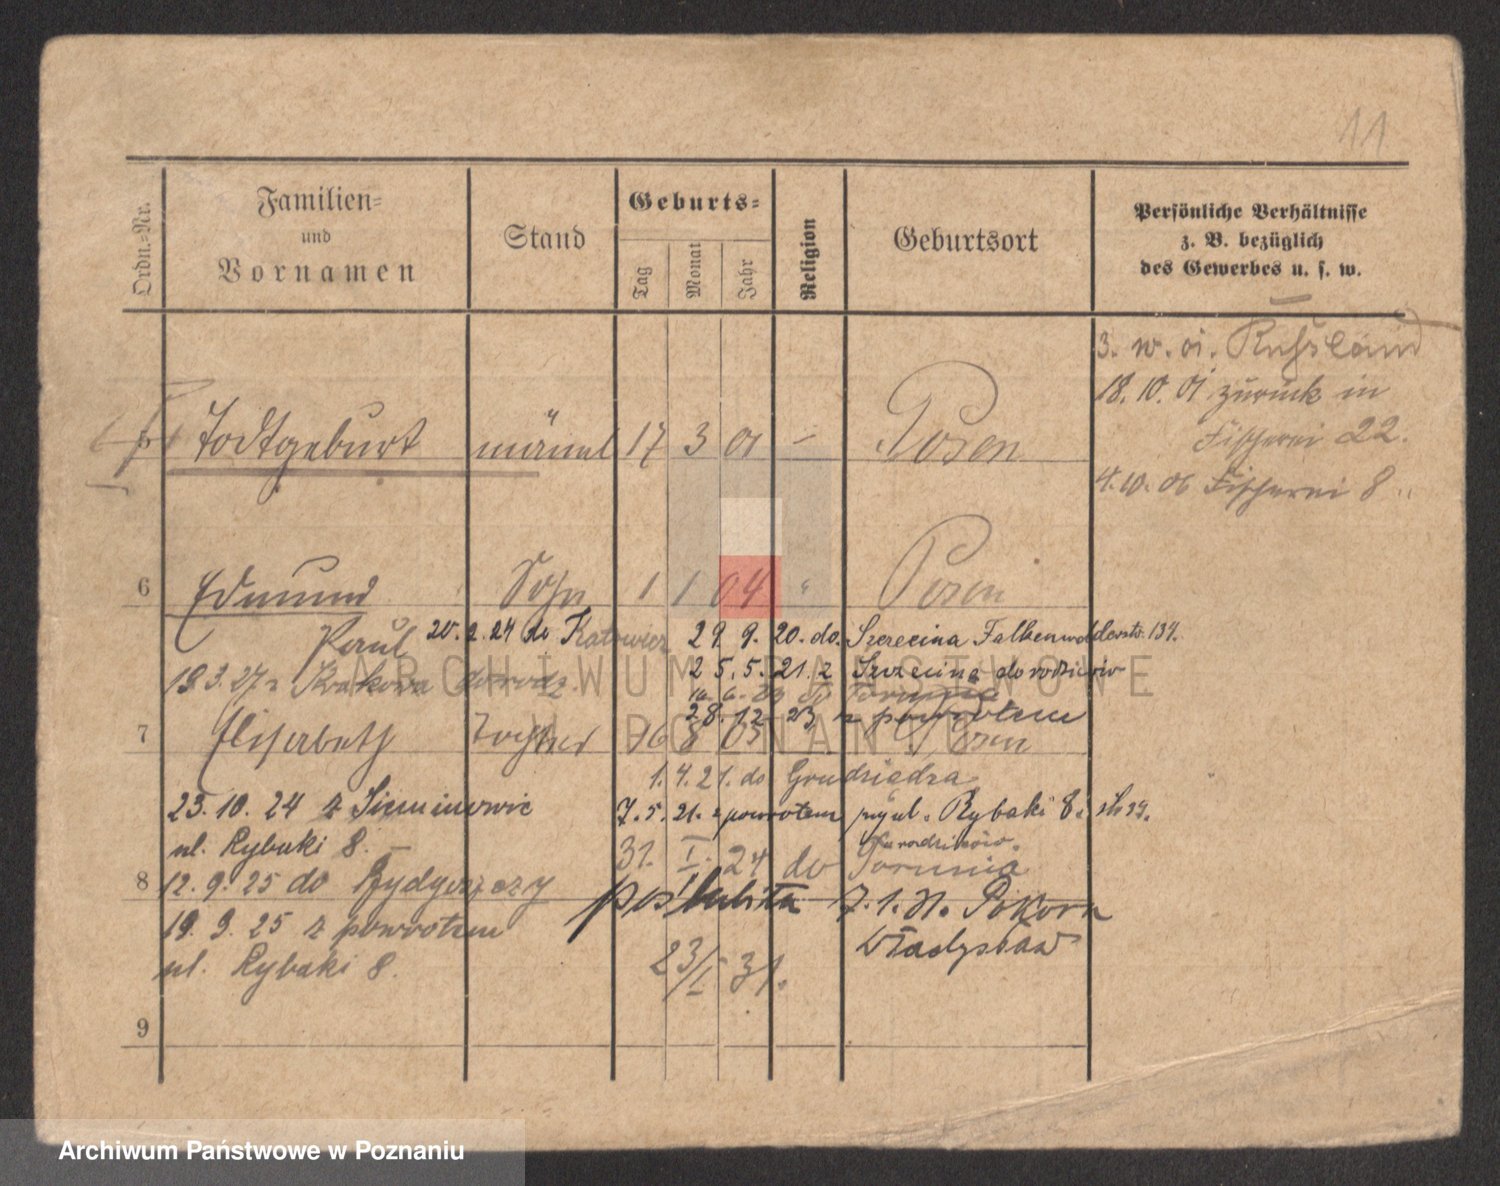 11
Ordn.-Nr.
Familien-
und
Vornamen
Stand
Geburts-
Tag
Monat
Jahr
Religion
Geburtsort
Persönliche Verhältnisse
z. B. bezüglich
des Gewerbes u. s. w.
3. w. 01. Russland
18. 10. 01 zurück in
Fischerei 22.
4. 10. 06 Fischerei 8
5 Todtgeburt männl 17 3 01 – Posen
6 Edmund Sohn 1 1 04 " Posen
Paul 20. 2. 24 do Katowic 29. 9. 20. do. Szczecina Falkenwalderstr. 134.
19 3. 27 z Krakowa do rodz. 25. 5. 21. z Szczecina do rodziców
28. 12 23 z powrotem
7 Elisabeth Tochter 16 8 05 " Posen
1. 4. 21. do Grudziądza
23. 10. 24 z Siemianowic 7. 5. 21. z powrotem Rybaki 8.
ul. Rybaki 8. –
31. I. 24 do Torunia
8 12. 9. 25 do Bydgoszczy
poślubiła 7. 1. 31. Pokora
19. 9. 25 z powrotem Władysław
ul. Rybaki 8. 23/I 31.
9
ARCHIWUM PAŃSTWOWE
W POZNANIU
Archiwum Państwowe w Poznaniu